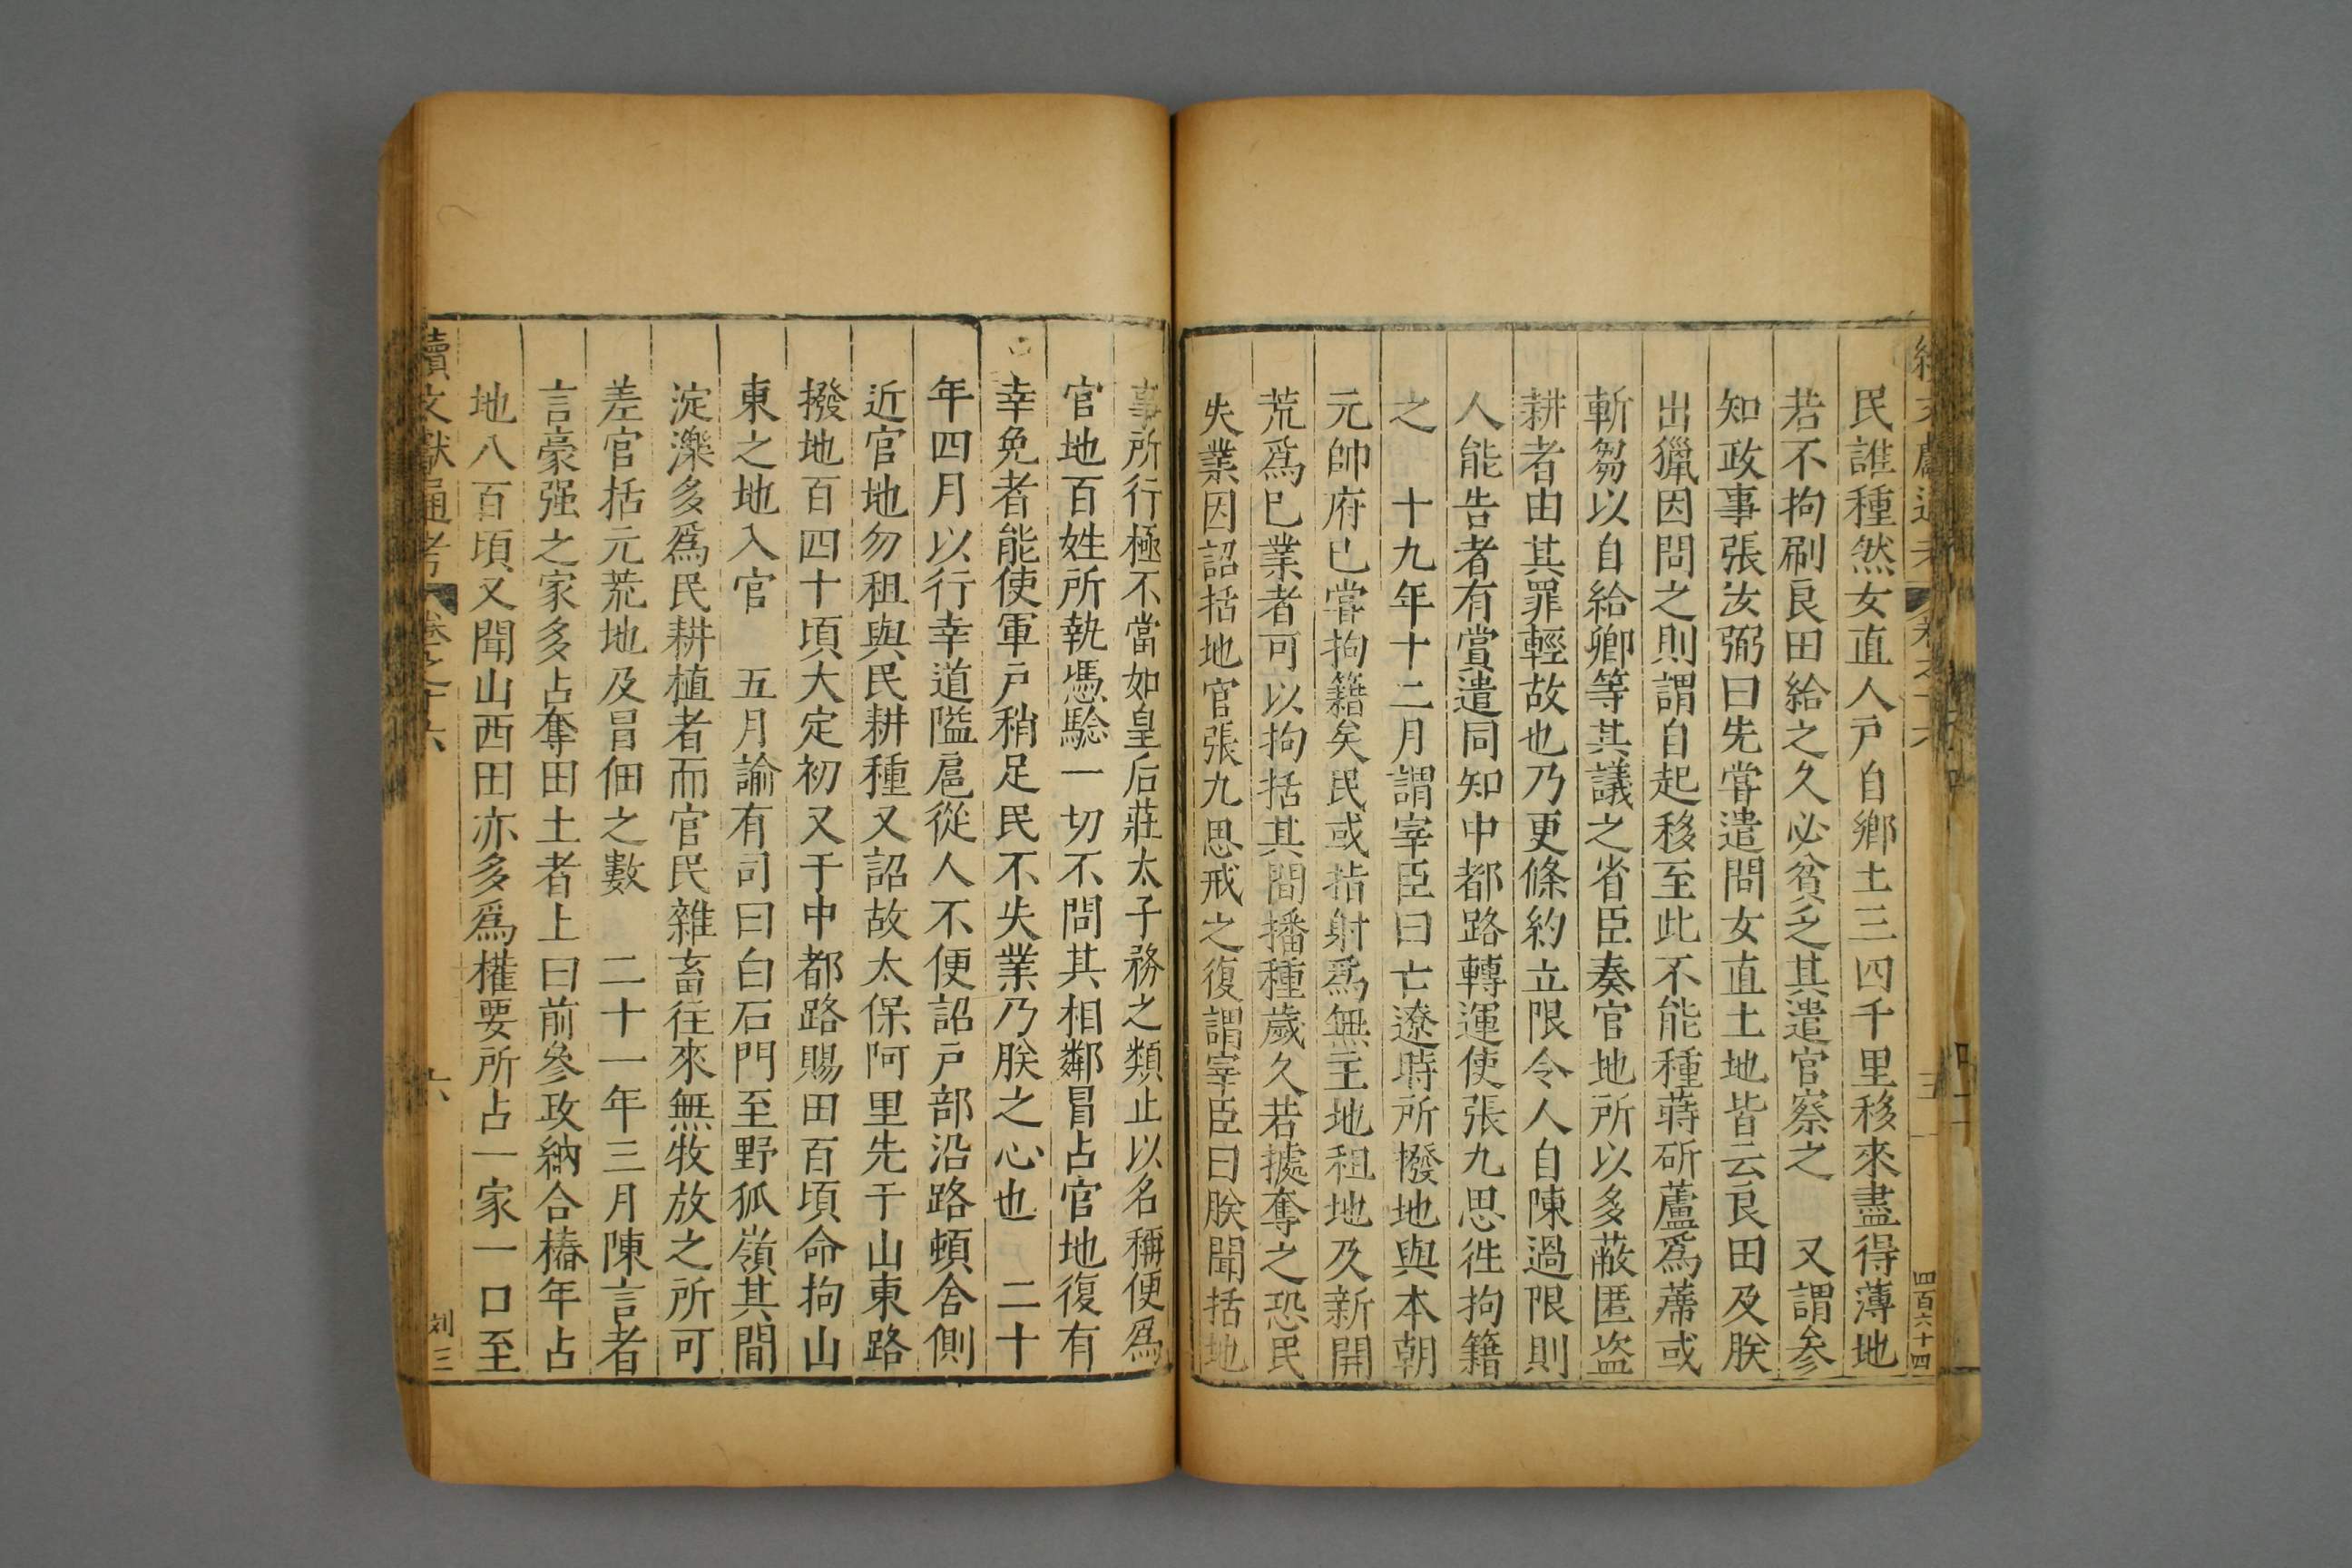 民誰種然女直人戸自鄉土三四千里移來盡得薄地
若不拘刷良田給之久必貧乏其遣官察之　又謂参
知政事張汝弼曰先嘗遣問女直土地皆云良田及朕
出獵因問之則謂自起移至此不能種蒔斫蘆爲蓆或
斬芻以自給卿等其議之省臣奏官地所以多蔽匿盗
耕者由其罪輕故也乃更條約立限令人自陳過限則
人能告者有賞遣同知中都路轉運使張九思徃拘籍
之　十九年十二月謂宰臣曰亡遼時所撥地與本朝
元帥府已嘗拘籍矣民或指射爲無主地租地及新開
荒爲已業者可以拘括其間播種歲久若據奪之恐民
失業因詔括地官張九思戒之復謂宰臣曰朕聞括地
事所行極不當如皇后莊太子務之類止以名稱便爲
官地百姓所執憑驗一切不問其相鄰冒占官地復有
幸免者能使軍戸稍足民不失業乃朕之心也　二十
年四月以行幸道隘扈從人不便詔戸部沿路頓舍側
近官地勿租與民耕種又詔故太保阿里先于山東路
撥地百四十頃大定初又于中都路賜田百頃命拘山
東之地入官　五月諭有司曰白石門至野狐嶺其間
淀濼多爲民耕植者而官民雜畜往來無牧放之所可
差官括元荒地及冒佃之數　二十一年三月陳言者
言豪强之家多占奪田土者上曰前參政納合椿年占
地八百頃又聞山西田亦多爲權要所占一家一口至
續文獻通考　卷之十六　六　刘三